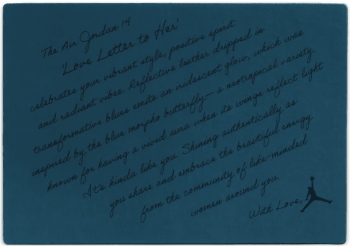 The Air Jordan 14
'Love Letter to Her'
celebrates your vibrant style, positive spirit
and radiant vibes. Reflective leather dripped in
transformative blues emits an iridescent glow, which was
inspired by the blue morpho butterfly—a neotropical variety
known for having a vivid aura when its wings reflect light.
It's kinda like you. Shining authentically as
you share and embrace the beautiful energy
from the community of like-minded
women around you.
With Love,